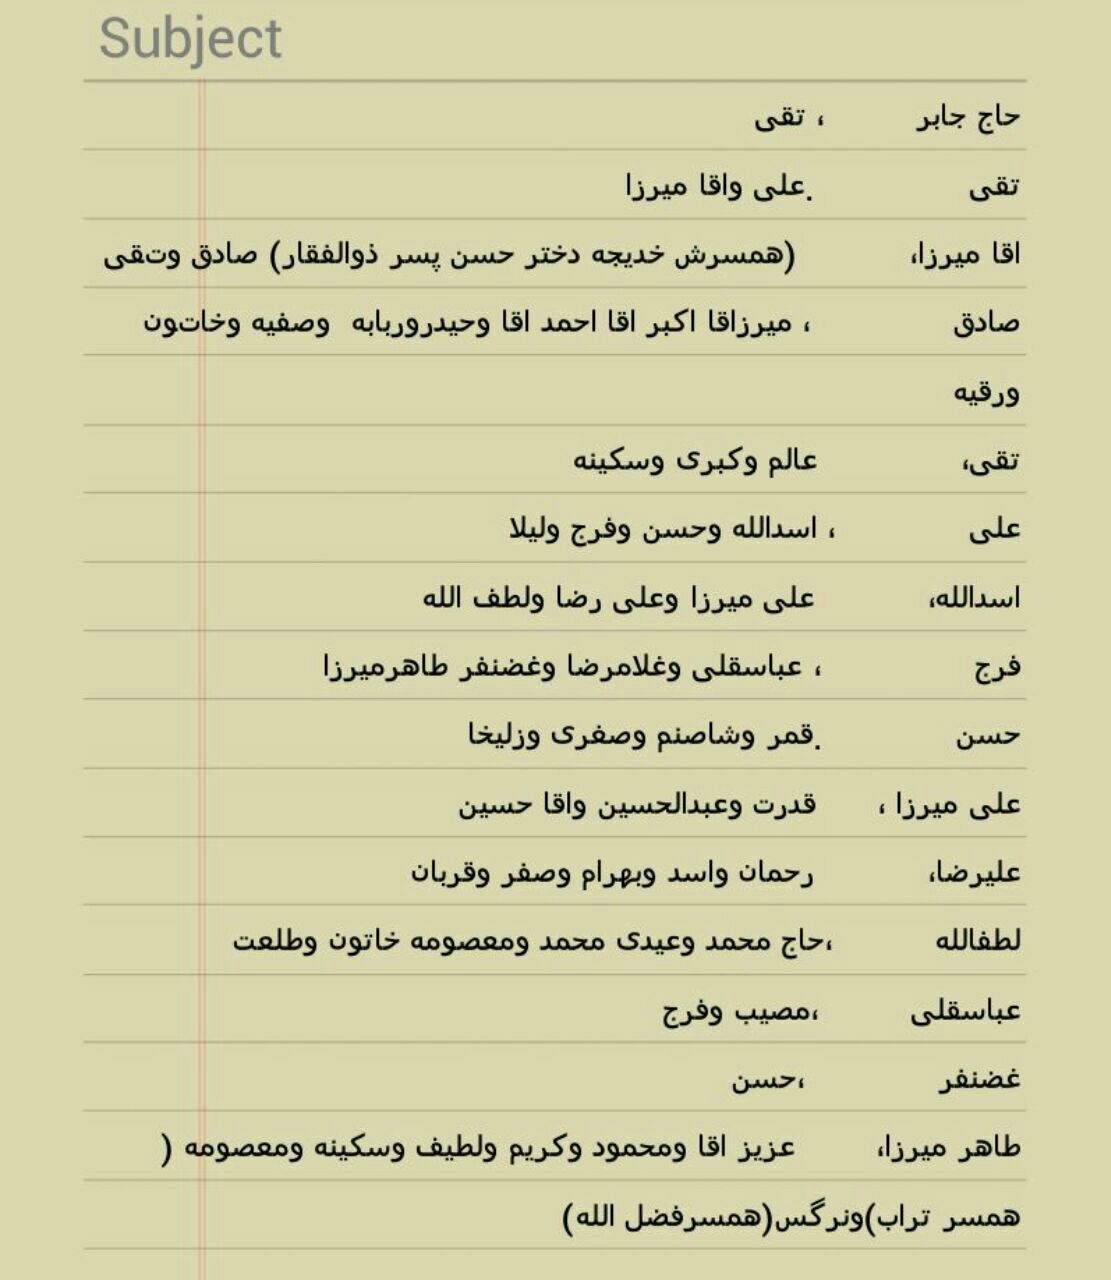 Subject
حاج جابر ، تقی
تقی .علی واقا میرزا
اقا میرزا، (همسرش خدیجه دختر حسن پسر ذوالفقار) صادق وتقی
صادق ، میرزاقا اکبر اقا احمد اقا وحیدروربابه وصفیه وخاتون
ورقیه
تقی، عالم وکبری وسکینه
علی ، اسدالله وحسن وفرج ولیلا
اسدالله، علی میرزا وعلی رضا ولطف الله
فرج ، عباسقلی وغلامرضا وغضنفر طاهرمیرزا
حسن .قمر وشاصنم وصغری وزلیخا
علی میرزا ، قدرت وعبدالحسین واقا حسین
علیرضا، رحمان واسد وبهرام وصفر وقربان
لطفالله ،حاج محمد وعیدی محمد ومعصومه خاتون وطلعت
عباسقلی ،مصیب وفرج
غضنفر ،حسن
طاهر میرزا، عزیز اقا ومحمود وکریم ولطیف وسکینه ومعصومه (
همسر تراب)ونرگس(همسرفضل الله)